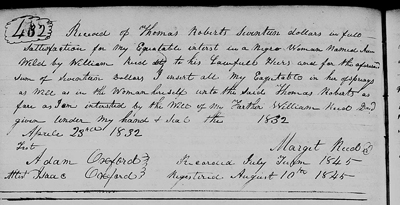 432
Received of Thomas Roberts Seventeen dollars in full
Satisfaction for My Equitable interst in a Negro Woman Named
Wild by William Reed to his Lawfull Heirs and for the aforesaid
Sum of Seventeen dollars I insert all My Equitable in her ofsprings
as Well as in the Woman himself unto the Said Thomas Robats as
fare as I am intersted by the Will of My Farther William Reed Decd
given under My hand & Seal this 1832
Aprile 28th 1832
Test Marget Reed
Adam Oxford Recorded July 1845
Attest Isaac Oxford Registerid August 10th 1845